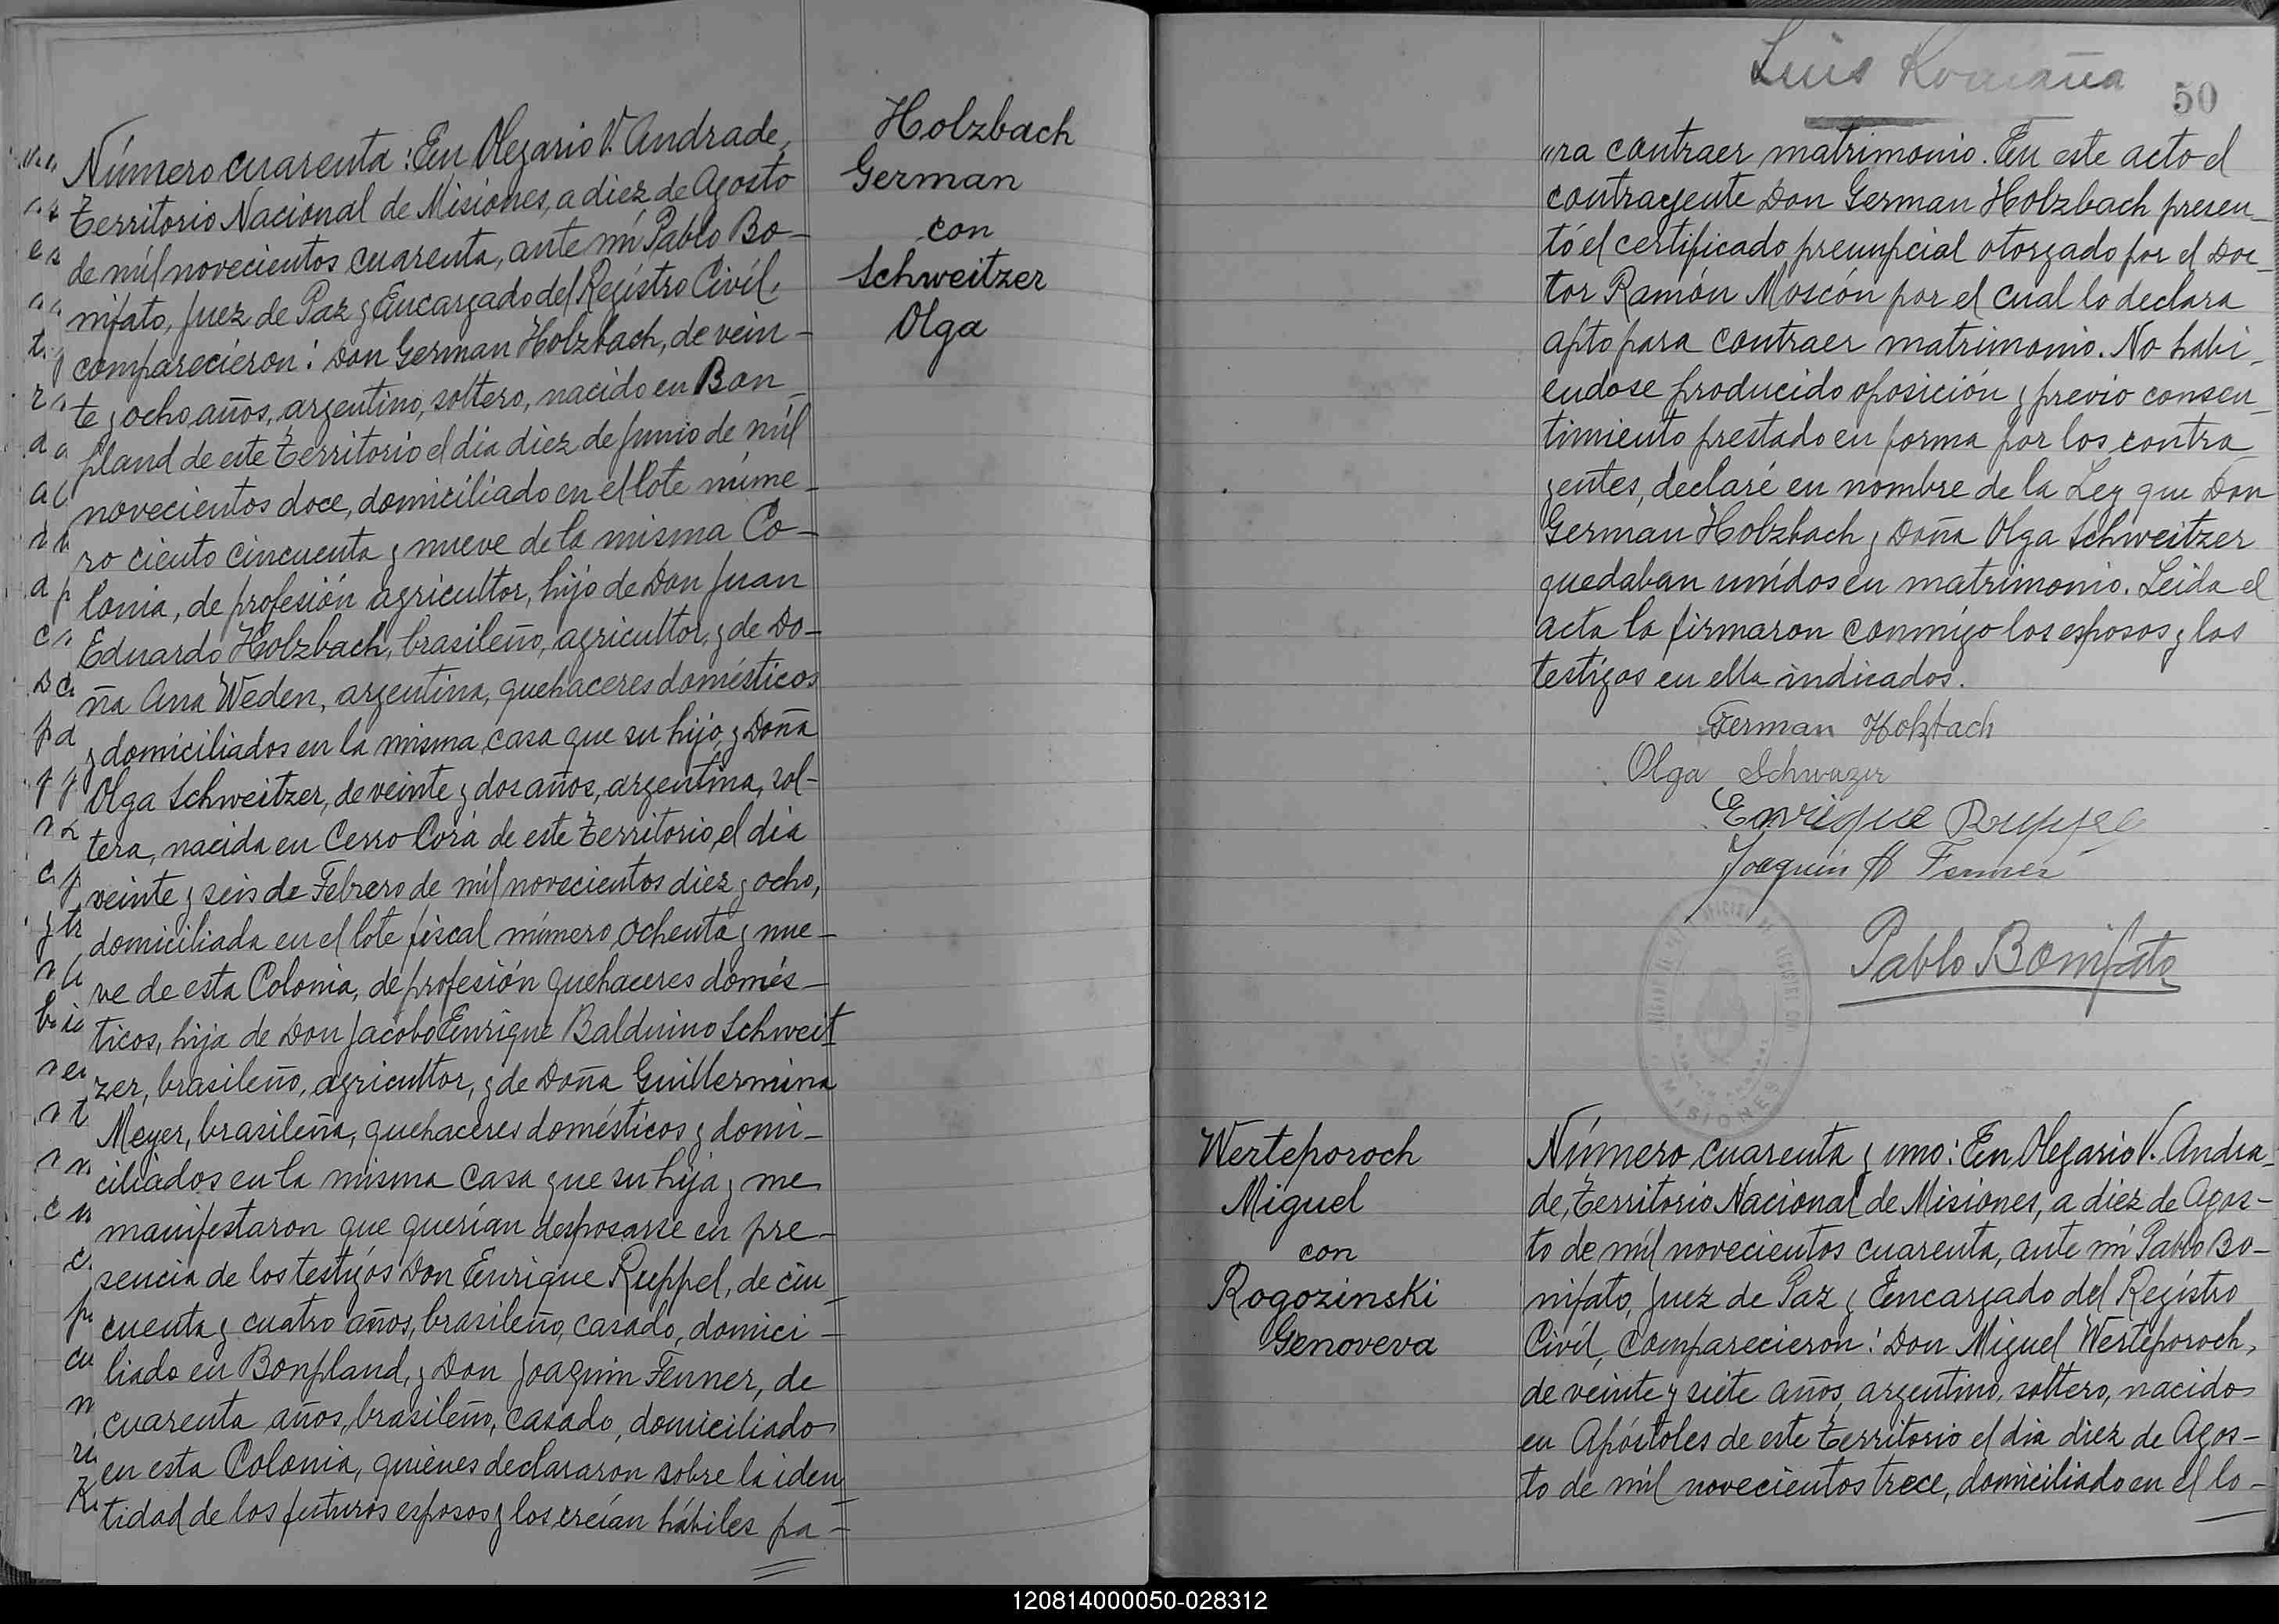 Holzbach
German
con
Schweitzer
Olga
Número cuarenta: En Olegario V. Andrade,
Territorio Nacional de Misiones, a diez de Agosto
de mil novecientos cuarenta, ante mí Pablo Bo-
nifato, Juez de Paz y Encargado del Registro Civil,
comparecieron: Don German Holzbach, de vein-
te y ocho años, argentino, soltero, nacido en Bon-
pland de este Territorio el dia diez de Junio de mil
novecientos doce, domiciliado en el lote núme-
ro ciento cincuenta y nueve de la misma Co-
lonia, de profesión agricultor, hijo de Don Juan
Eduardo Holzbach, brasileño, agricultor, y de Do-
ña Ana Weden, argentina, quehaceres domésticos
y domiciliados en la misma casa que su hijo, y Doña
Olga Schweitzer, de veinte y dos años, argentina, sol-
tera, nacida en Cerro Corá de este Territorio, el dia
veinte y seis de Febrero de mil novecientos diez y ocho,
domiciliada en el lote fiscal número ochenta y nue-
ve de esta Colonia, de profesión quehaceres domés-
ticos, hija de Don Jacobo Enrique Balduino Schweit-
zer, brasileño, agricultor, y de Doña Guillermina
Meyer, brasileña, quehaceres domésticos y domi-
ciliados en la misma casa que su hija y me
manifestaron que querían desposarse en pre-
sencia de los testigos Don Enrique Ruppel, de cin-
cuenta y cuatro años, brasileño, casado, domici-
liado en Bonpland, y Don Joaquin Fenner, de
cuarenta años, brasileño, casado, domiciliado
en esta Colonia, quienes declararon sobre la iden-
tidad de los futuros esposos y los creían hábiles pa-
Luis Romaña
50
"ra contraer matrimonio. En este acto el
contrayente Don German Holzbach presen-
tó el certificado prenupcial otorgado por el Doc-
tor Ramón Moscón por el cual lo declara
apto para contraer matrimonio. No habi-
endose producido oposición y previo consen-
timiento prestado en forma por los contra-
yentes, declaré en nombre de la Ley que Don
German Holzbach y Doña Olga Schweitzer
quedaban unidos en matrimonio. Leida el
acta la firmaron conmigo los esposos y los
testigos en ella indicados.
German Holzbach
Olga
Enrique Ruppel
Joaquin A Fenner
Pablo Bonifato
MISIONES
Werteporoch
Miguel
con
Rogozinski
Genoveva
Número cuarenta y uno: En Olegario V. Andra-
de, Territorio Nacional de Misiones, a diez de Agos-
to de mil novecientos cuarenta, ante mí Pablo Bo-
nifato, Juez de Paz y Encargado del Registro
Civil, comparecieron: Don Miguel Werteporoch,
de veinte y siete años, argentino, soltero, nacido
en Apóstoles de este Territorio el dia diez de Agos-
to de mil novecientos trece, domiciliado en el lo-
120814000050-028312